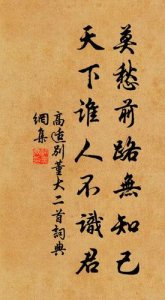 莫愁前路無知己
天下誰人不識君
高適別董大二首詞典
網集